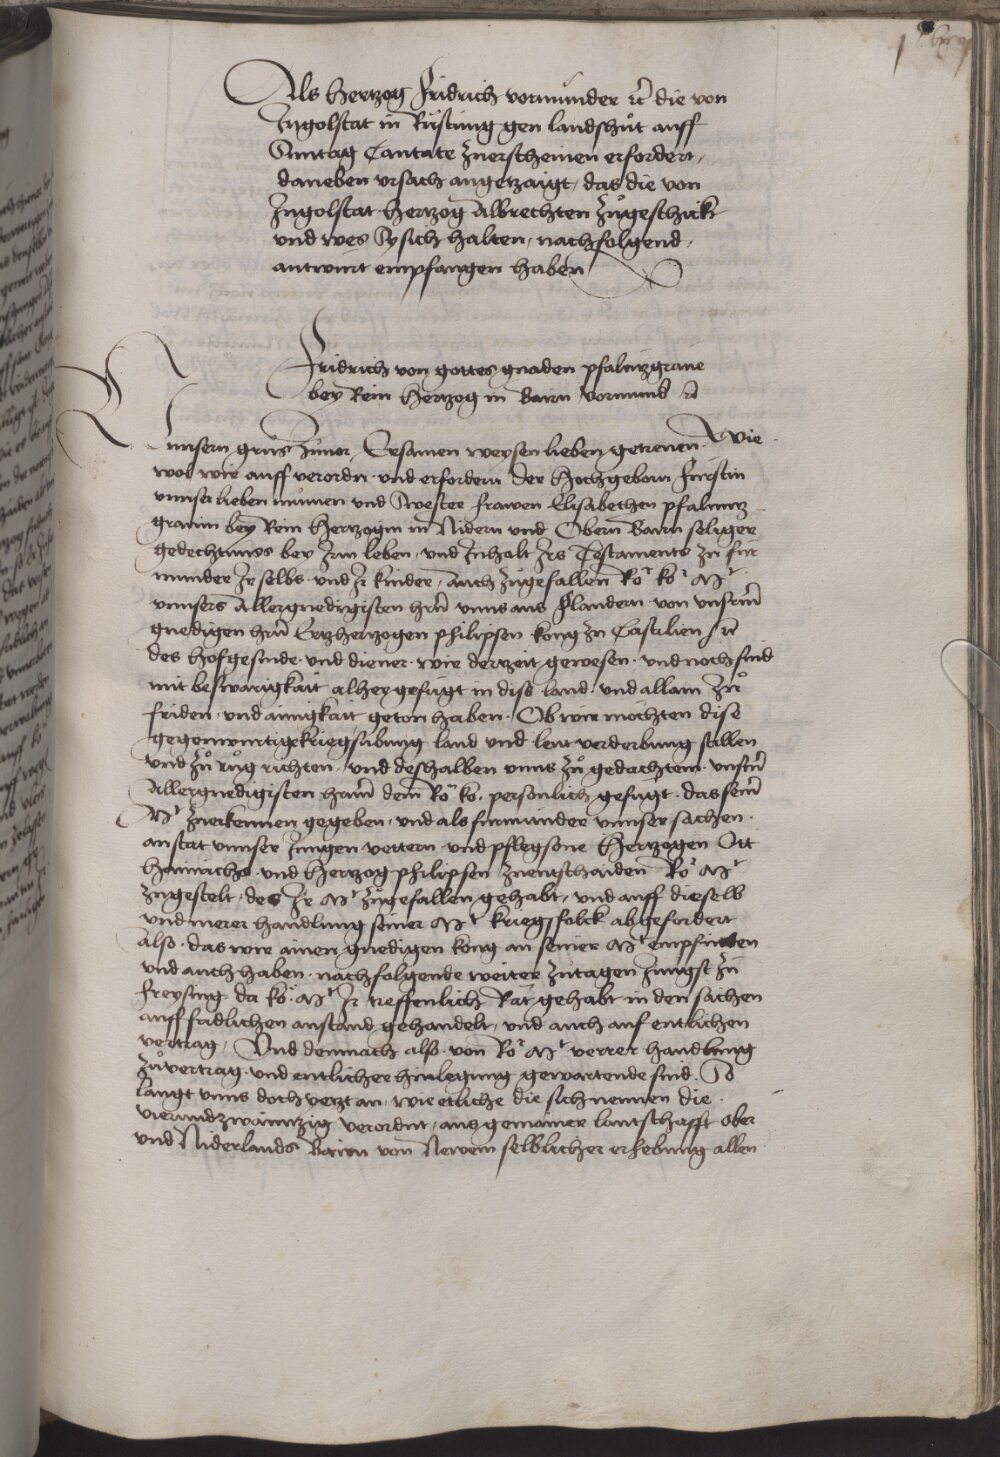 Als Hertzog Fridrich vormunder ꝛc̄ die von
Ingolstat in Rüstung gen landshůt auff
Suntag Cantate zuerscheinen erfordert,
daneben vrsach angetzaigt, das die von
Ingolstat Hertzog Albrechten zůgeschickt
vnd wes Sy sich halten, nachfolgend,
antwurt empfangen haben
Fridrich von gottes gnaden pfaltzgraue
bey Rein Hertzog in Bairn Vormund ꝛc̄
Vnnsern grus zuuor, Ersamen weysen lieben getrewen. Wie
wol wir auff verordn vnd erfordern der Hochgeborn Furstin
vnnser lieben mumen vnd Swester frawen Elisabethen pfaltz
grauin bey Rein Hertzogin in Nidern vnd Obern Bairn seliger
gedechtnuss bey Irm leben, vnd Inhalt Irs Testaments zu fur
munder Ir selbs vnd Ir kinder, Auch zůgefallen Ro͂ ko͂ Mt
vnnsers Allergnedigisten hrn̄ vnns aus Flandern von vnserm̄
gnedigen hrn̄ Ertzhertzogen philipsen konig zu Castilien ꝛc̄
des hofgesinde vnd diener wir dertzeit gewesen vnd noch sind
mit beswarigkait alhey gefügt in diss land vnd allain zů
friden vnd ainigkait geton haben. Ob wir mochten dise
gegenwurtige kriegsübung land vnd leut verderbung stillen
vnd zů růg richten, vnd deshalben vnns zů gedachtem vnserm̄
Allergnedigisten herrn̄ dem Ro͂ ko. personlich gefugt. das seinr̄
Mt zuerkennen gegeben, vnd als furmunder vnnser sachen.
an stat vnnser Jungen vettern vnd pflegsone Hertzogen Ott
Hainrichs vnd Hertzog philipsen zuentschaiden Ro͂ Mt
zugestelt, des Ir Mt zůgefallen gehabt, vnd auff dieselb
vnd merer handlung seiner Mt kriegsfolck abgefordert
also. das wir ainen gnedigen konig an seiner Mt empfinden
vnd auch haben. nachfolgende weiter zutagen Jungst zu
Freysing da ko͂. Mt Ir treffenlich Rät gehabt in den sachen
auff fridlichen anstand gehandelt, vnd auch auf entlichen
vertrag, Vnd demnach also von Ro͂ Mt verrer handlung
zůvertrag vnd entlicher hinlegung gewartende sind. So
langt vnns doch yetzt an, wie etliche die sich nennen die.
vierundzwaintzig verordnt, aus gemainer lantschafft ober
vnd Niderlands Bairn von Newem selblicher erhebung allen